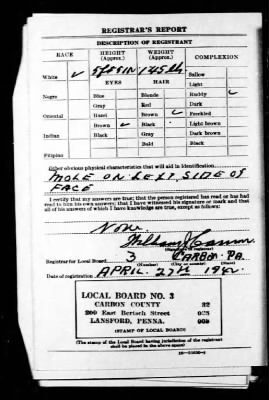 REGISTRAR'S REPORT
DESCRIPTION OF REGISTRANT
RACE HEIGHT (Approx.) WEIGHT (Approx.) COMPLEXION
5 ft 8 in 145 lb
White ✓ EYES HAIR Sallow
Light
Negro Blue Blonde Ruddy ✓
Gray Red Dark
Oriental Hazel Brown ✓ Freckled
Brown ✓ Black Light brown
Indian Black Gray Dark brown
Bald Black
Filipino
Other obvious physical characteristics that will aid in identification
MOLE ON LEFT SIDE OF
FACE
I certify that my answers are true; that the person registered has read or has had
read to him his own answers; that I have witnessed his signature or mark and that
all of his answers of which I have knowledge are true, except as follows:
None
William J
Registrar for Local Board 3 CARBON PA.
(Number) (City or county) (State)
Date of registration APRIL 27th 1942
LOCAL BOARD NO. 3
CARBON COUNTY
200 East Bertsch Street
LANSFORD, PENNA.
(STAMP OF LOCAL BOARD)
(The stamp of the Local Board having jurisdiction of the registrant
shall be placed in the above space.)